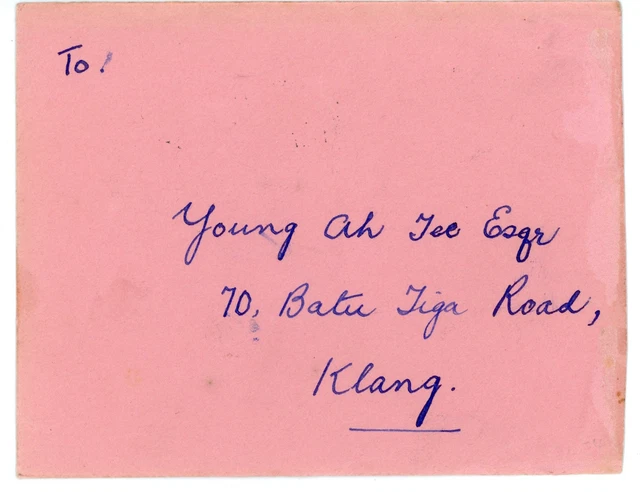 To!
Young Ah Tee Esqr
70, Batu Tiga Road,
Klang.